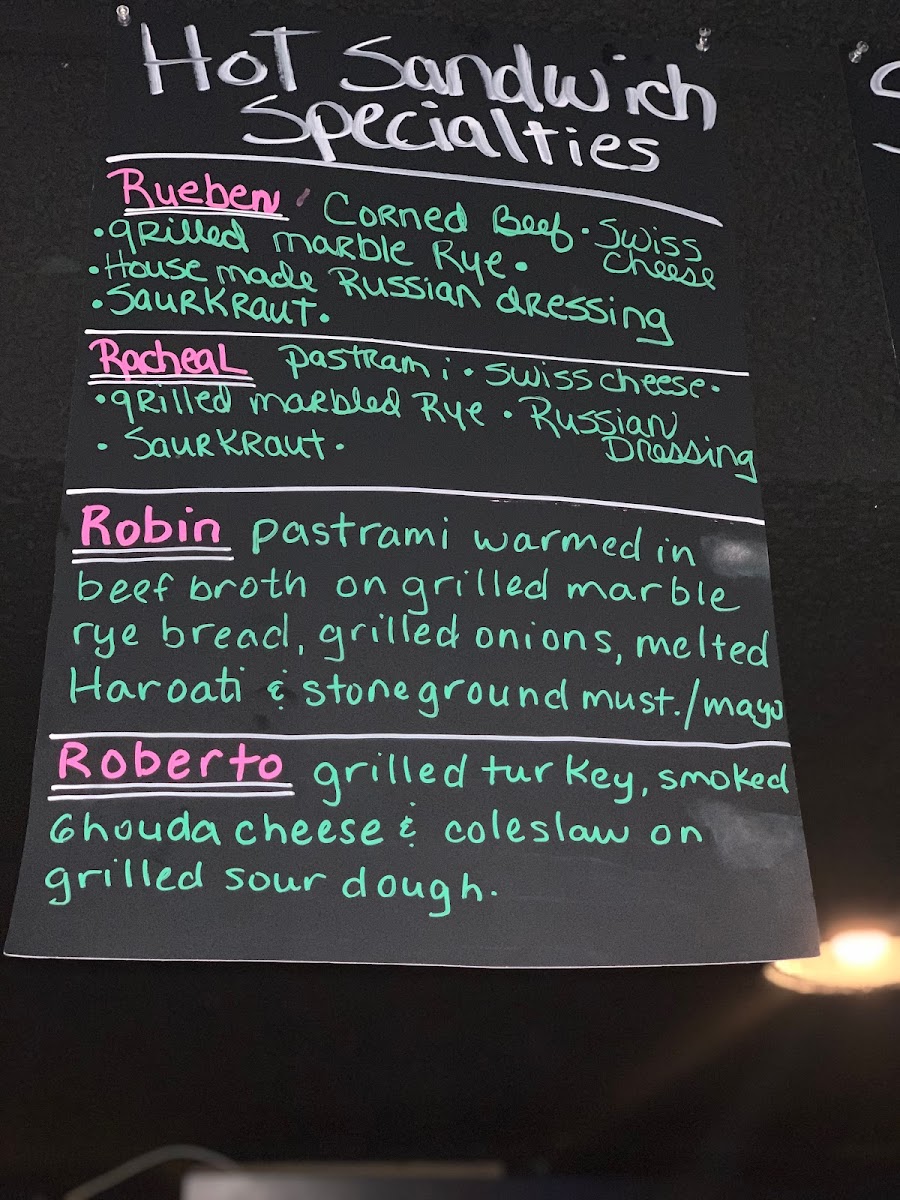 Hot Sandwich
Specialties
Rueben Corned Beef • Swiss
cheese
• grilled marble Rye •
• House made Russian dressing
• Saurkraut.
Racheal pastrami • swiss cheese •
• grilled marbled Rye • Russian
Dressing
• Saurkraut •
Robin pastrami warmed in
beef broth on grilled marble
rye bread, grilled onions, melted
Haroati & stoneground must./mayo
Roberto grilled turkey, smoked
Ghouda cheese & coleslaw on
grilled sour dough.